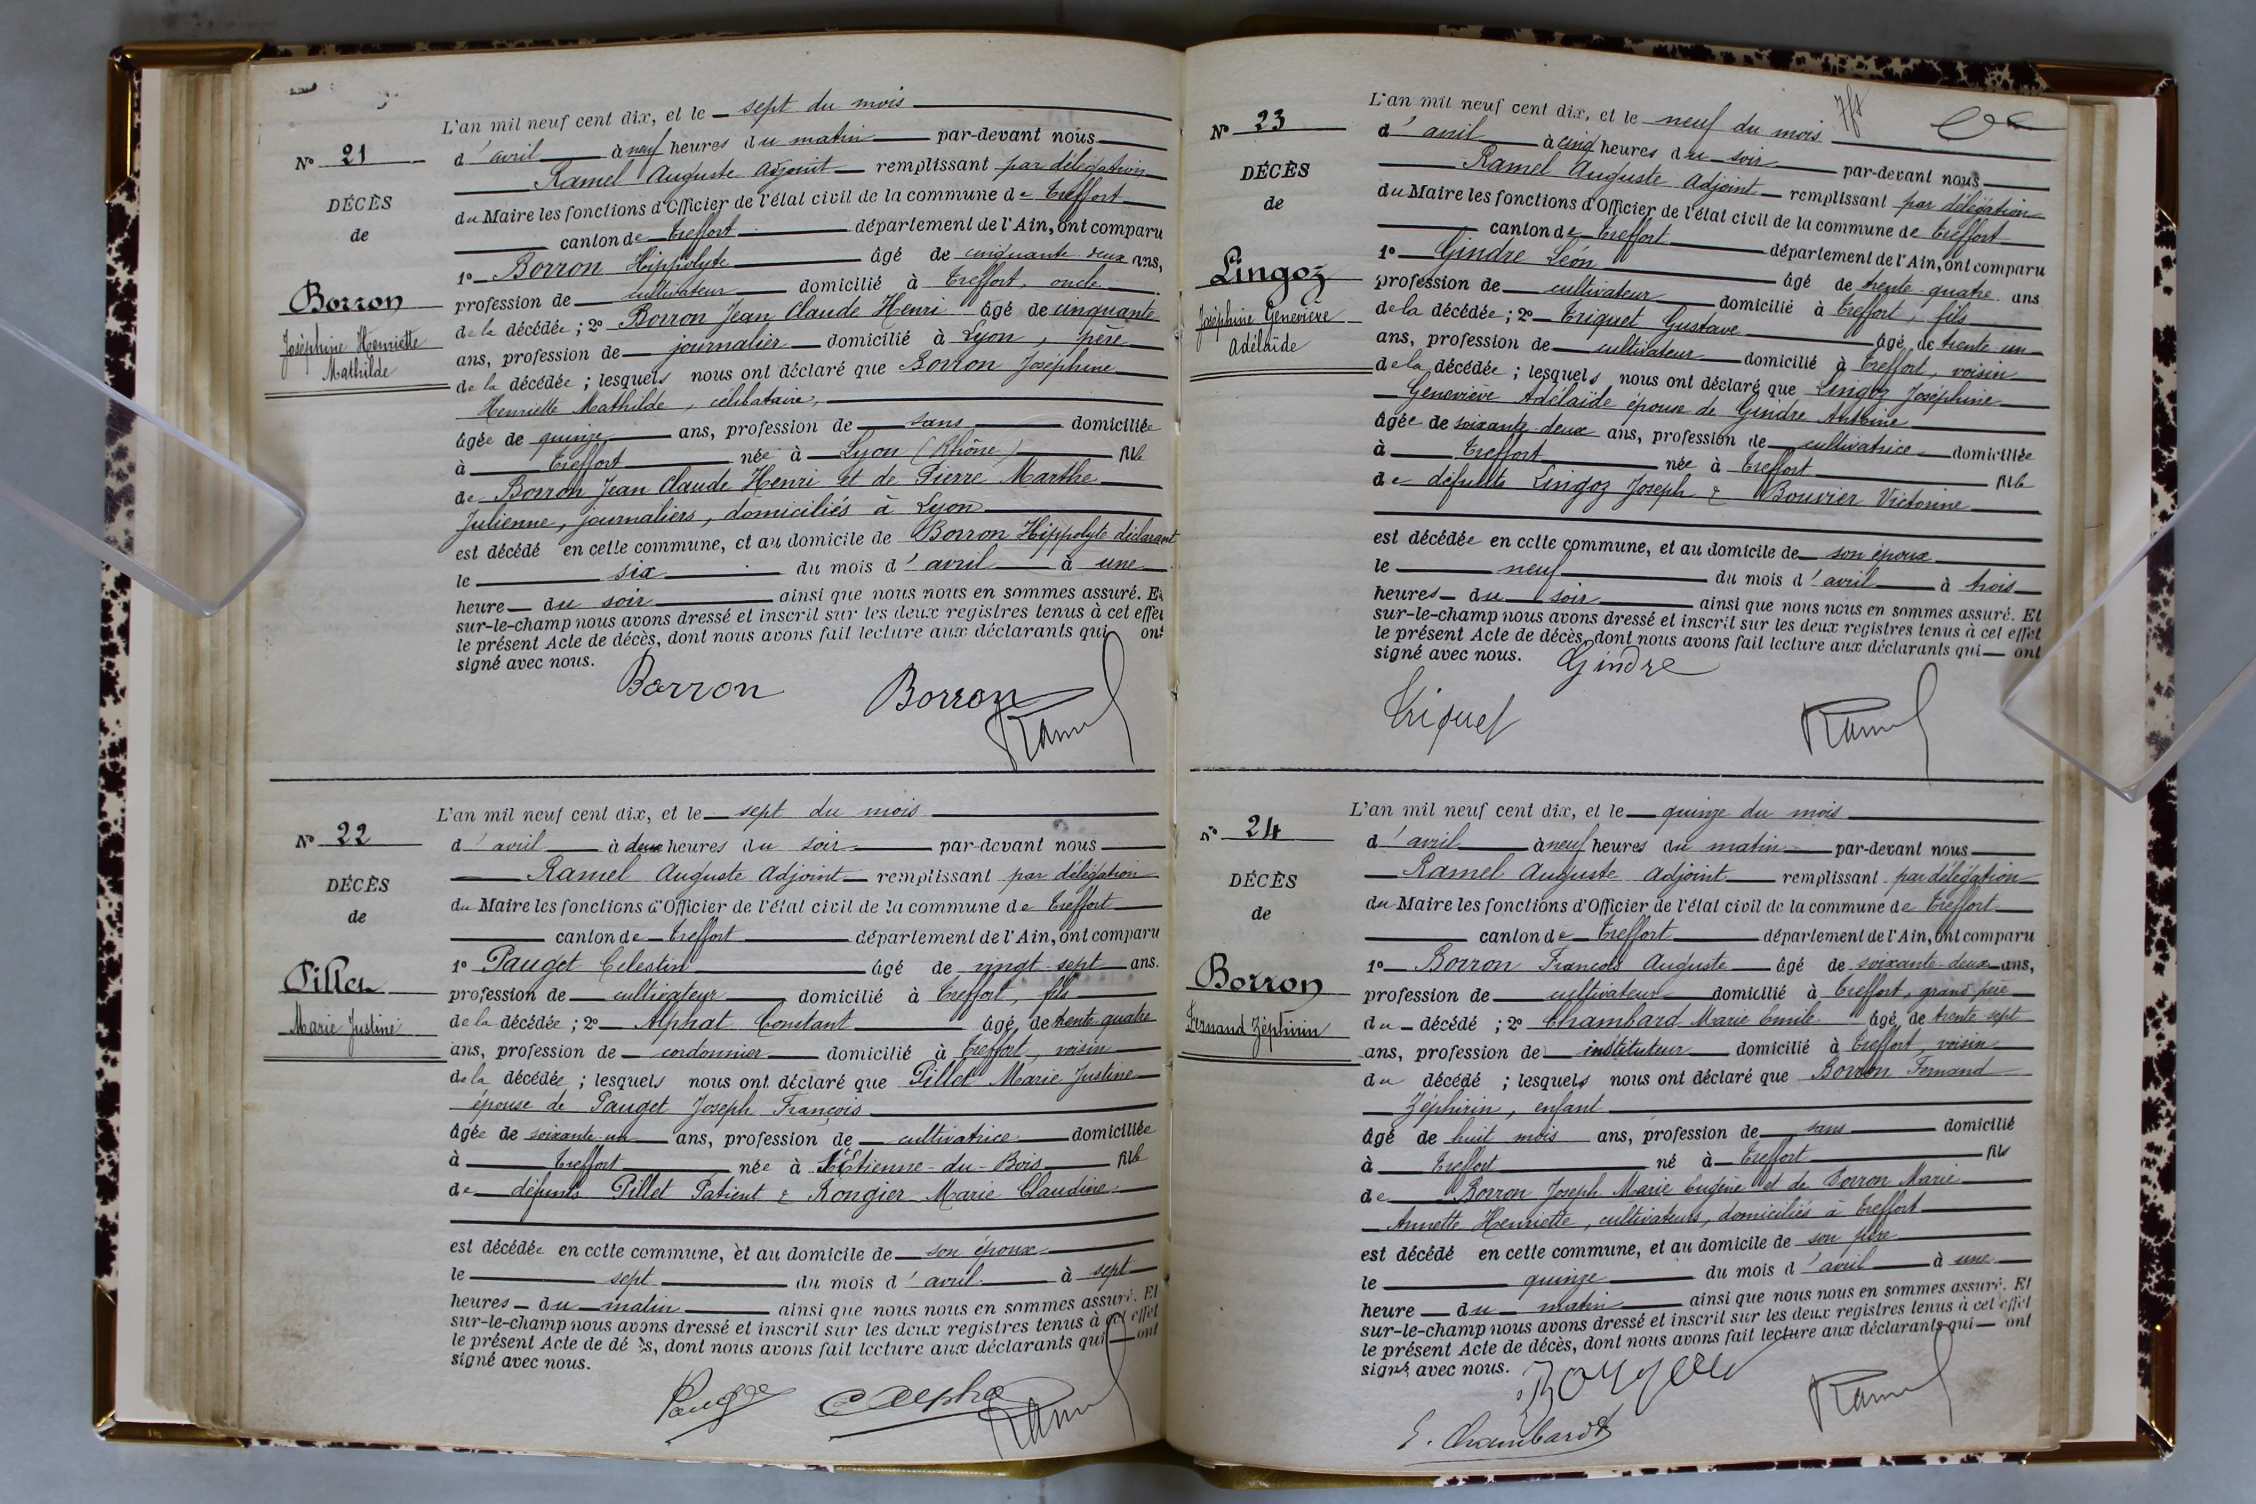 L'an mil neuf cent dix, et le sept du mois
Nº 21
d'avril à neuf heures du matin par-devant nous
Ramel Auguste Adjoint remplissant par délégation
DÉCÈS
du Maire les fonctions d'Officier de l'état civil de la commune de Treffort
de
canton de Treffort département de l'Ain, ont comparu
1º Borron Hippolyte âgé de cinquante deux ans,
Borron
profession de cultivateur domicilié à Treffort, oncle
de la décédée ; 2º Borron Jean Claude Henri âgé de cinquante
Joséphine Henriette
Mathilde
ans, profession de journalier domicilié à Lyon, père
de la décédée ; lesquels nous ont déclaré que Borron Joséphine
Henriette Mathilde, célibataire,
âgée de quinze ans, profession de sans domiciliée
à Treffort née à Lyon (Rhône) fille
de Borron Jean Claude Henri et de Pierre Marthe
Julienne, journaliers, domiciliés à Lyon
est décédé en cette commune, et au domicile de Borron Hippolyte déclarant
le six du mois d'avril à une
heure du soir ainsi que nous nous en sommes assuré. Et
sur-le-champ nous avons dressé et inscrit sur les deux registres tenus à cet effet
le présent Acte de décès, dont nous avons fait lecture aux déclarants qui ont
signé avec nous.
Borron Borron
Ramel
L'an mil neuf cent dix, et le sept du mois
Nº 22
d'avril à deux heures du soir par-devant nous
Ramel Auguste Adjoint remplissant par délégation
DÉCÈS
du Maire les fonctions d'Officier de l'état civil de la commune de Treffort
de
canton de Treffort département de l'Ain, ont comparu
1º Pauget Celestin âgé de vingt-sept ans.
Pillet
profession de cultivateur domicilié à Treffort, fils
Marie Justine
de la décédée ; 2º Alphat Constant âgé de trente quatre
ans, profession de cordonnier domicilié à Treffort, voisin
de la décédée ; lesquels nous ont déclaré que Pillet Marie Justine
épouse de Pauget Joseph François
âgée de soixante-un ans, profession de cultivatrice domiciliée
à Treffort née à St Etienne-du-Bois fille
de défunts Pillet Patient & Rongier Marie Claudine
est décédée en cette commune, et au domicile de son époux
le sept du mois d'avril à sept
heures du matin ainsi que nous nous en sommes assuré. Et
sur-le-champ nous avons dressé et inscrit sur les deux registres tenus à cet effet
le présent Acte de décès, dont nous avons fait lecture aux déclarants qui ont
signé avec nous.
Pauget C Alpha
Ramel
L'an mil neuf cent dix, et le neuf du mois
Nº 23
d'avril à cinq heures du soir par-devant nous
DÉCÈS
Ramel Auguste Adjoint remplissant par délégation
de
du Maire les fonctions d'Officier de l'état civil de la commune de Treffort
canton de Treffort département de l'Ain, ont comparu
Lingoz
1º Gindre Léon âgé de trente-quatre ans
profession de cultivateur domicilié à Treffort, fils
Joséphine Geneviève
Adélaïde
de la décédée ; 2º Triquet Gustave âgé de trente-un
ans, profession de cultivateur domicilié à Treffort, voisin
de la décédée ; lesquels nous ont déclaré que Lingoz Joséphine
Geneviève Adélaïde épouse de Gindre Antoine
âgée de soixante-deux ans, profession de cultivatrice domiciliée
à Treffort née à Treffort fille
de défunts Lingoz Joseph & Bouvier Victorine
est décédée en cette commune, et au domicile de son époux
le neuf du mois d'avril à trois
heures du soir ainsi que nous nous en sommes assuré. Et
sur-le-champ nous avons dressé et inscrit sur les deux registres tenus à cet effet
le présent Acte de décès, dont nous avons fait lecture aux déclarants qui ont
signé avec nous.
Gindre
Triquet Ramel
L'an mil neuf cent dix, et le quinze du mois
Nº 24
d'avril à neuf heures du matin par-devant nous
Ramel Auguste Adjoint remplissant par délégation
DÉCÈS
du Maire les fonctions d'Officier de l'état civil de la commune de Treffort
de
canton de Treffort département de l'Ain, ont comparu
1º Borron François Auguste âgé de soixante-deux ans,
Borron
profession de cultivateur domicilié à Treffort, grand père
Fernand Zéphirin
du décédé ; 2º Chambard Marie Emile âgé de trente sept
ans, profession de instituteur domicilié à Treffort, voisin
du décédé ; lesquels nous ont déclaré que Borron Fernand
Zéphirin, enfant
âgé de huit mois ans, profession de sans domicilié
à Treffort né à Treffort fils
de Borron Joseph Marie Eugène et de Borron Marie
Annette Henriette, cultivateurs, domiciliés à Treffort
est décédé en cette commune, et au domicile de son père
le quinze du mois d'avril à une
heure du matin ainsi que nous nous en sommes assuré. Et
sur-le-champ nous avons dressé et inscrit sur les deux registres tenus à cet effet
le présent Acte de décès, dont nous avons fait lecture aux déclarants qui ont
signé avec nous.
Ramel
E. Chambard